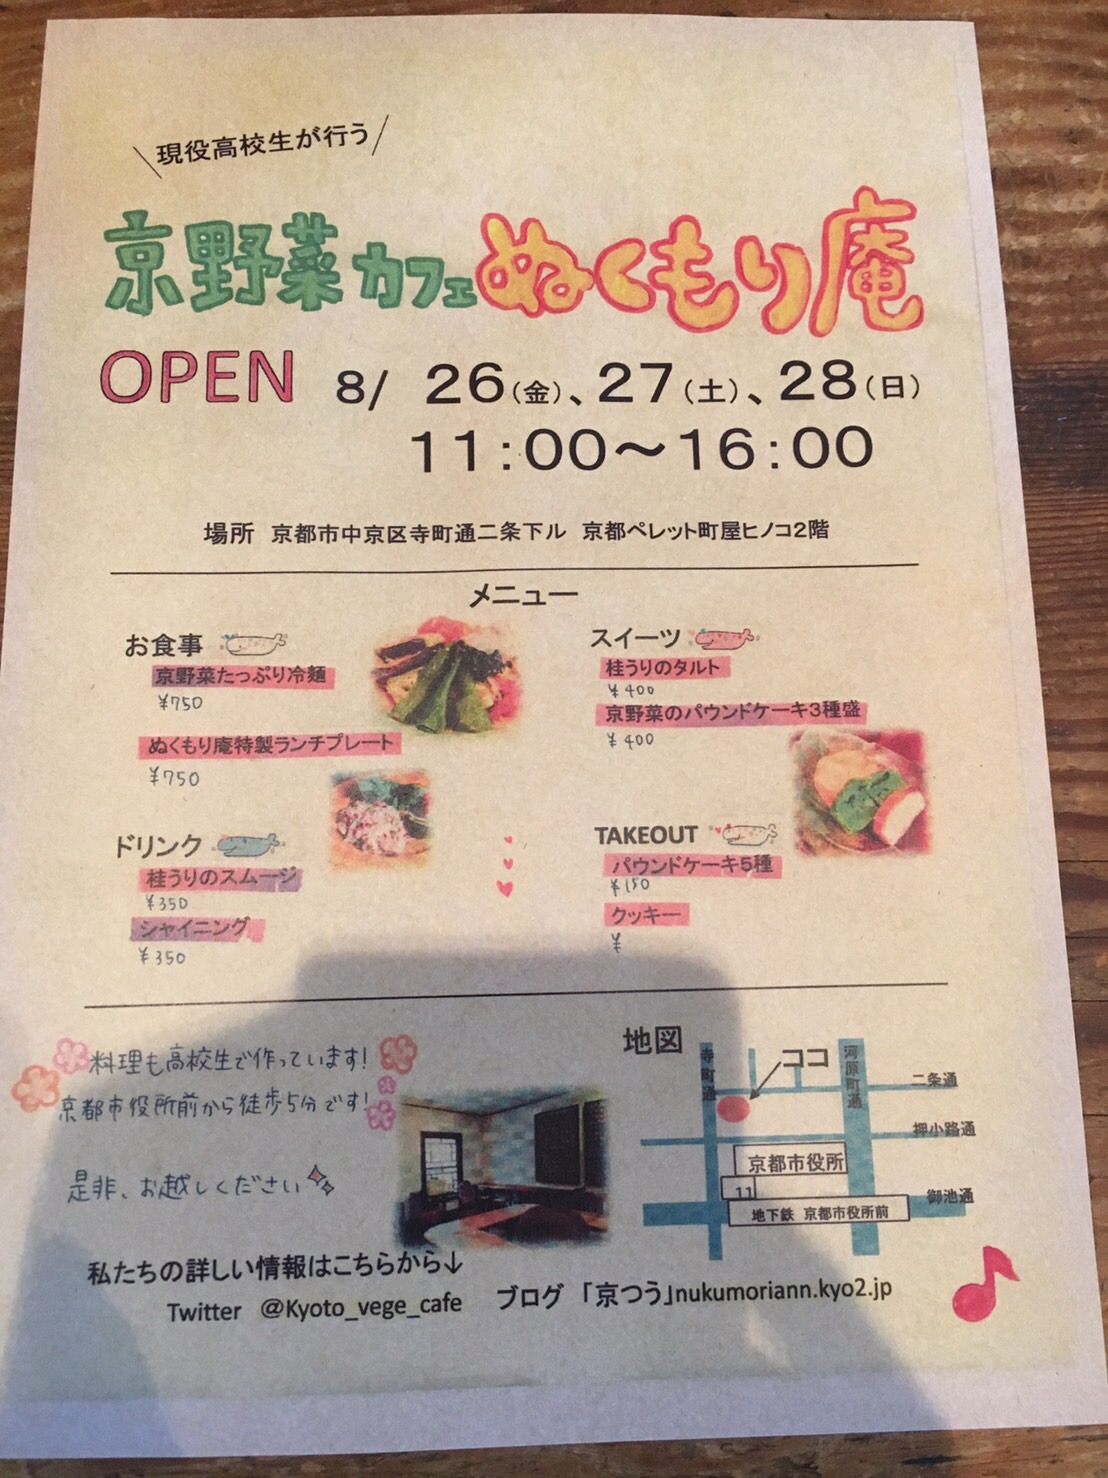 現役高校生が行う
京野菜カフェぬくもり庵
OPEN 8/ 26(金)、27(土)、28(日)
11:00～16:00
場所 京都市中京区寺町通二条下ル 京都ペレット町屋ヒノコ2階
メニュー
お食事
京野菜たっぷり冷麺
¥750
ぬくもり庵特製ランチプレート
¥750
スイーツ
桂うりのタルト
¥400
京野菜のパウンドケーキ3種盛
¥400
ドリンク
桂うりのスムージ
¥350
シャイニング
¥350
TAKEOUT
パウンドケーキ5種
¥150
クッキー
¥
料理も高校生で作っています!
京都市役所前から徒歩5分です!
是非、お越しください
地図
ココ
寺町通
河原町通
二条通
押小路通
京都市役所
11
御池通
地下鉄 京都市役所前
私たちの詳しい情報はこちらから↓
Twitter @Kyoto_vege_cafe ブログ 「京つう」nukumoriann.kyo2.jp